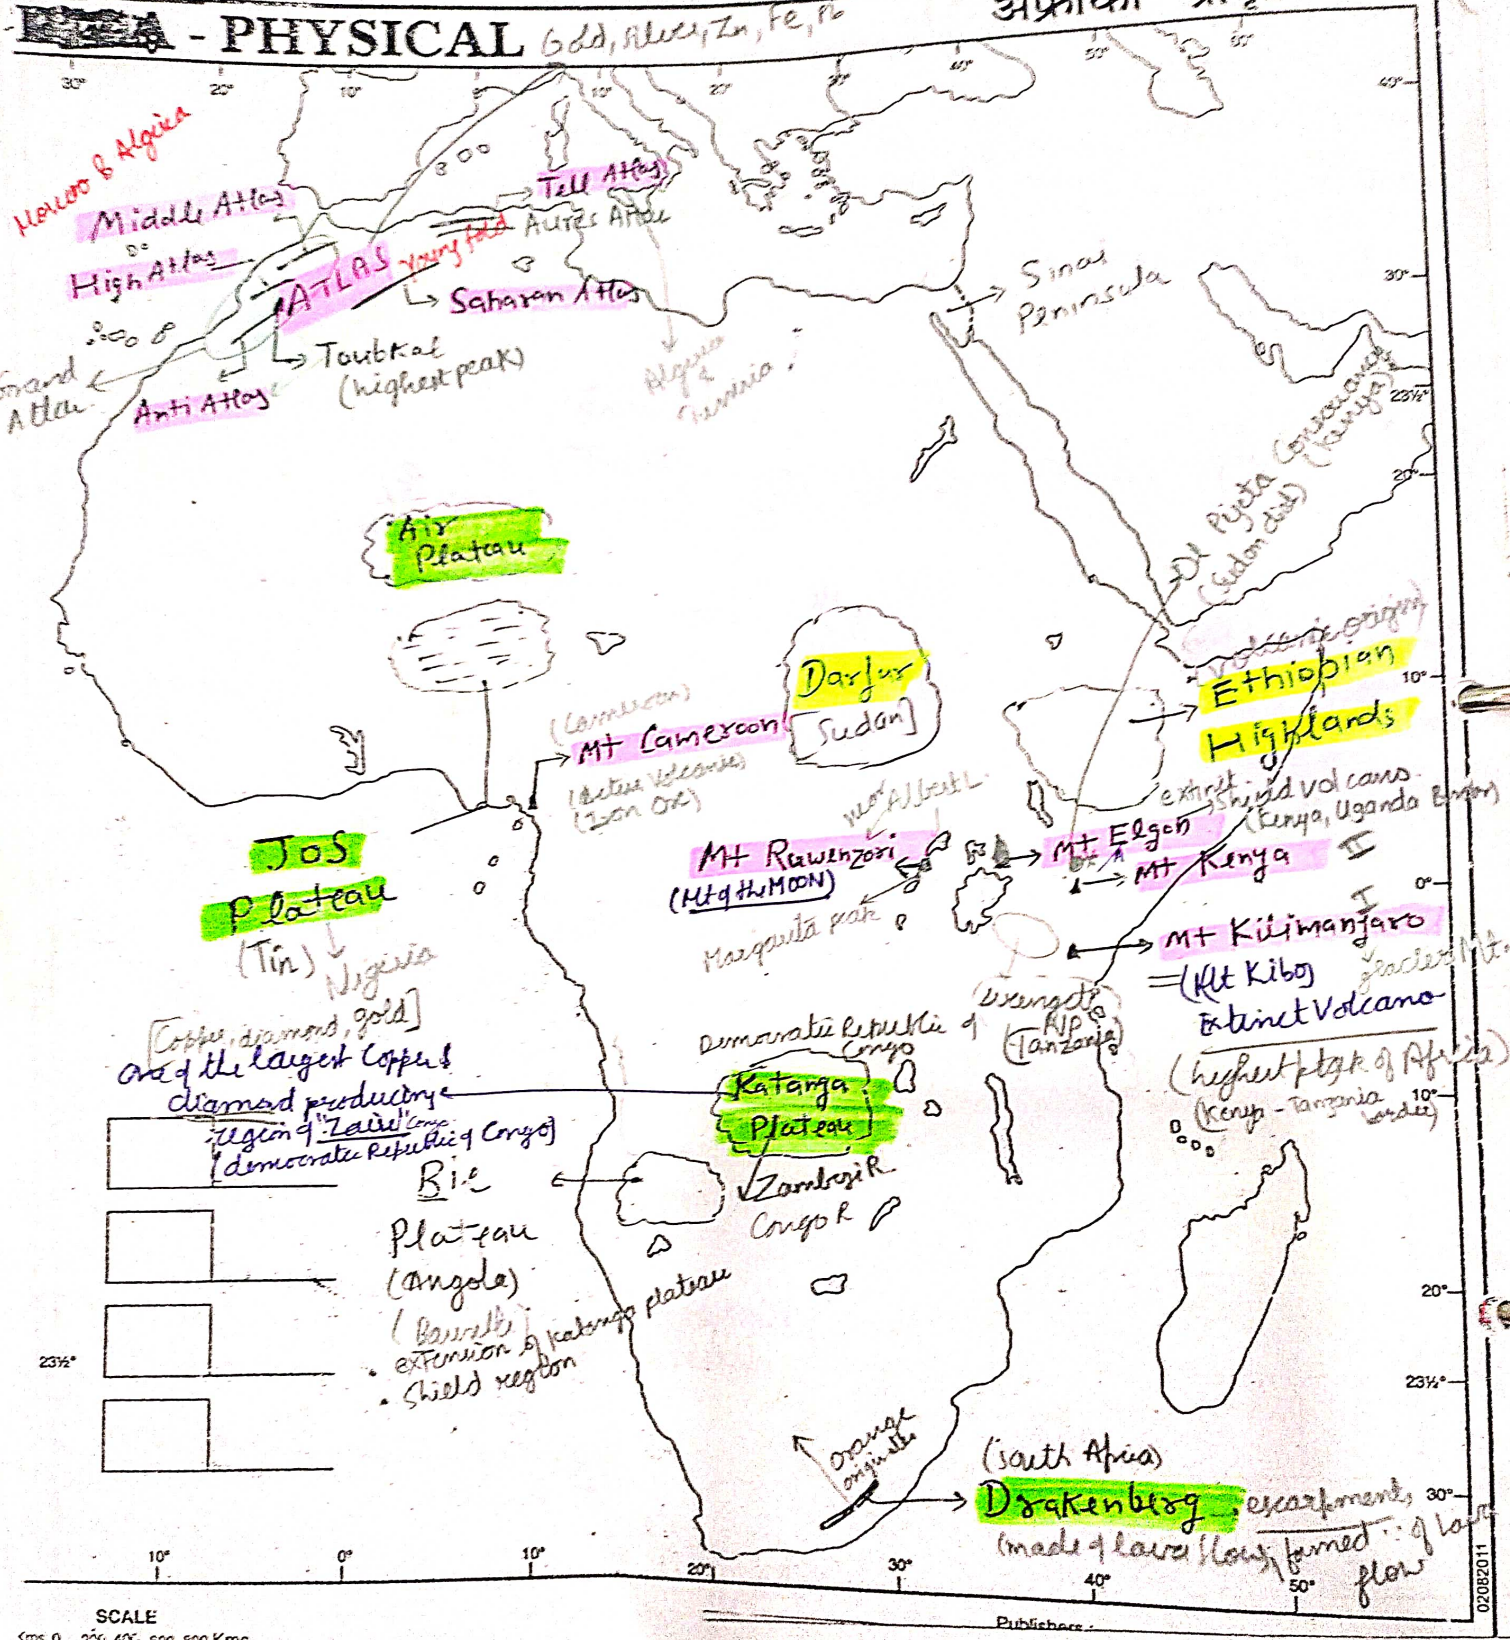 - PHYSICAL
Gold, Silver, Zn, Fe, Pb
अफ्रीका
30°
20°
10°
0°
10°
20°
30°
40°
50°
60°
40°
Morocco & Algeria
Middle Atlas
High Atlas
ATLAS
young fold
Tell Atlas
Aures Atlas
Saharan Atlas
Toubkal
(highest peak)
Anti Atlas
Grand
Atlas
Algeria
&
Tunisia
Sinai
Peninsula
30°
23½°
20°
Ol Pijeta Conservancy
(Kenya)
(Sudan died)
Air
Plateau
Darfur
[Sudan]
(volcanic origin)
Ethiopian
Highlands
10°
(Cameroon)
Mt Cameroon
(Active Volcanic)
(Iron Ore)
near Albert L.
Mt Ruwenzori
(Mt of the MOON)
Margarita peak
extinct, shield volcano.
(Kenya, Uganda Border)
Mt Elgon
II
Mt Kenya
0°
I
Mt Kilimanjaro
glacier Mt.
=(Mt Kibo)
Extinct Volcano
(highest peak of Africa)
(Kenya - Tanzania
border)
10°
Serengeti
N/P
(Tanzania)
Jos
Plateau
(Tin)
Nigeria
[Copper, diamond, gold]
one of the largest Copper &
diamond producing
region of "Zaire" Congo
[democratic Republic of Congo]
Democratic Republic of
Congo
Katanga
Plateau
Zambezi R
Congo R
Bie
Plateau
(Angola)
(Bauxite)
• extension of Katanga plateau
• Shield region
20°
23½°
23½°
Orange
originates
(South Africa)
Drakenberg, escarpment,
(made of lava flow), formed ∵ of lava
flow
30°
10°
0°
10°
20°
30°
40°
50°
02082011
SCALE
Publishers: